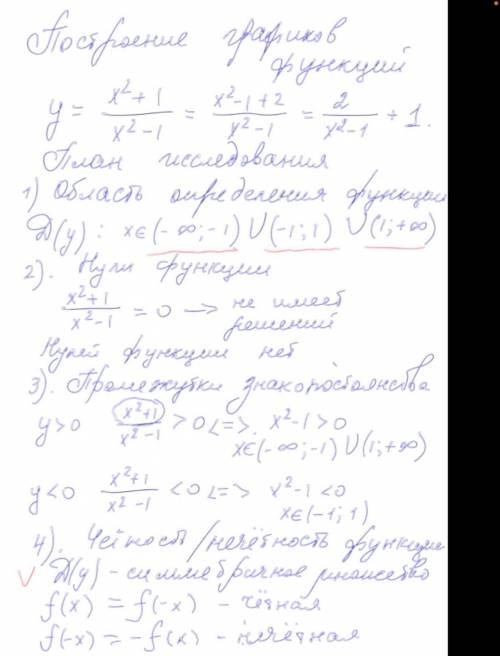 Построение графиков
функций
y = x²+1 / x²-1 = x²-1+2 / x²-1 = 2 / x²-1 + 1.
План исследования
1) Область определения функции
D(y): x∈(-∞;-1)∪(-1;1)∪(1;+∞)
2). Нули функции
x²+1 / x²-1 = 0 → не имеет
решений
Нулей функции нет
3). Промежутки знакопостоянства
y>0 x²+1 / x²-1 >0 <=> x²-1>0
x∈(-∞;-1)∪(1;+∞)
y<0 x²+1 / x²-1 <0 <=> x²-1<0
x∈(-1;1)
4). Чётность/нечётность функции
V D(y) - симметричное множество
f(x) = f(-x) - чётная
f(-x) = -f(x) - нечётная